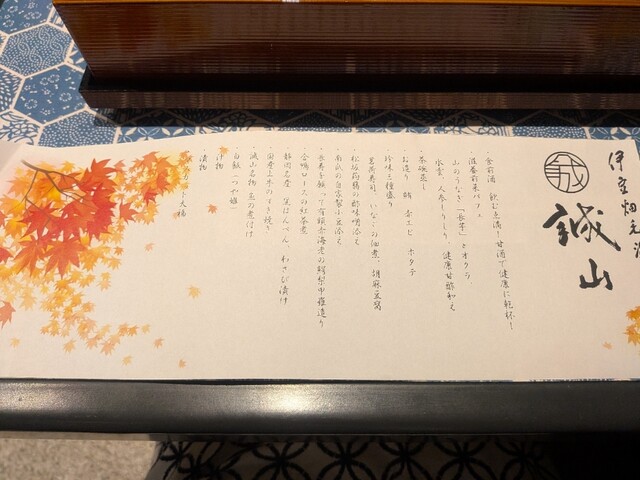 伊豆畑毛温
誠山
・食前酒 飲む点滴!甘酒で健康に乾杯!
・滋養前菜パフェ
山のうなぎ「長芋」とオクラ
氷雲 人参しりしり 健康甘酢和え
・茶碗蒸し
・お造り 鮪 赤エビ ホタテ
・珍味三種盛り
茗荷寿司 いなごの佃煮 胡麻豆腐
・松坂筍鶏の酢味噌添え
・南瓜の自家製小豆添え
・長寿を願って有頭赤海老の鰐梨甲羅造り
・合鴨ロースの紅茶煮
・静岡名産 黒はんぺん わさび漬け
・国産上牛のすき焼き
・誠山名物 魚の煮付け
・白飯 つや姫
・汁物
・漬物